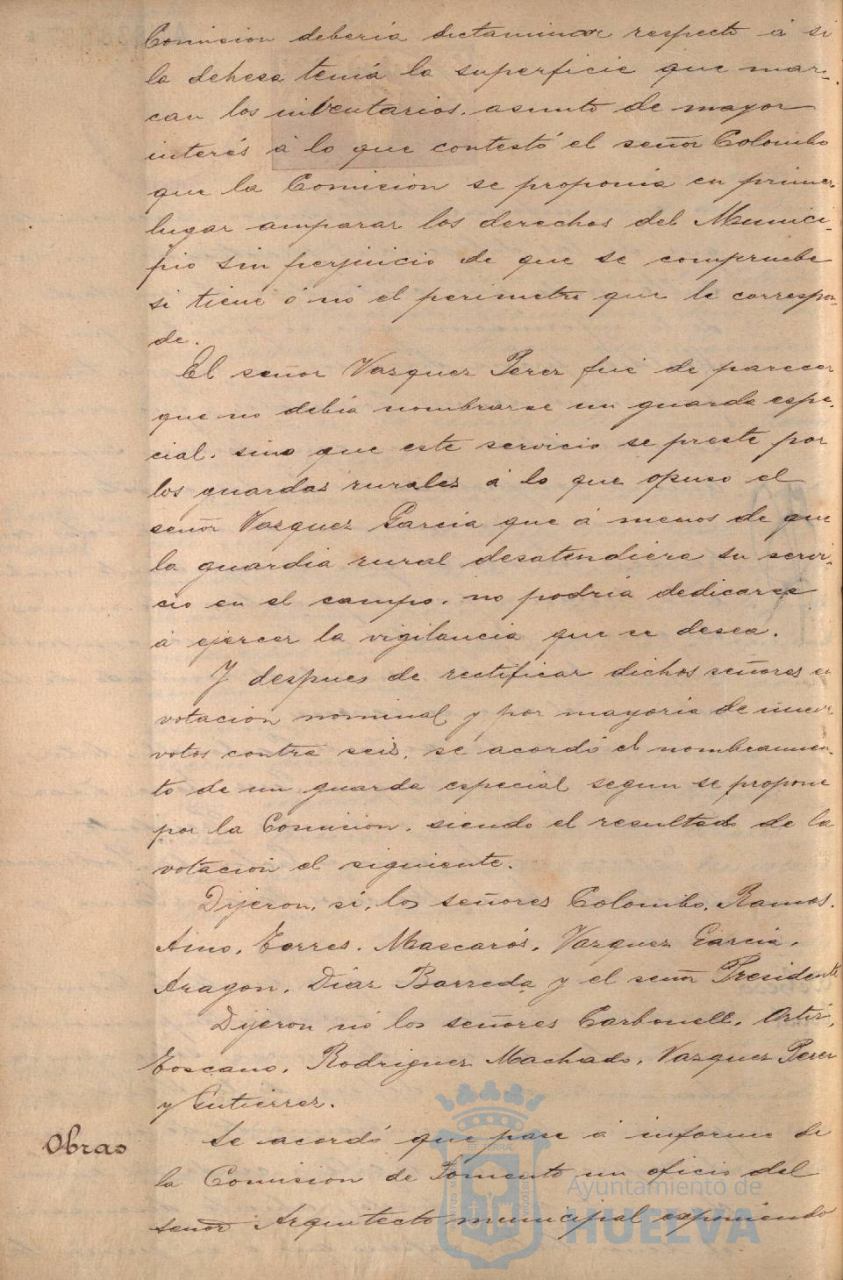 Comision debería dictaminar respecto á si
la dehesa tenía la superficie que mar-
can los inventarios, asunto de mayor
interés á lo que contestó el señor Colombo
que la Comision se proponia en primer
lugar amparar los derechos del Munici-
pio sin perjuicio de que se compruebe
si tiene ó nó el perimetro que le correspon-
de.
El señor Vazquez Perez fué de parecer
que no debia nombrarse un guarda espe-
cial, sino que este servicio se preste por
los guardas rurales á lo que opuso el
señor Vazquez Garcia que á menos de que
la guardia rural desatendiera su servi-
cio en el campo, no podría dedicarse
á ejercer la vigilancia que se desea.
Y despues de rectificar dichos señores en
votacion nominal y por mayoria de nueve
votos contra seis, se acordó el nombramien-
to de un guarda especial segun se propone
por la Comision, siendo el resultado de la
votacion el siguiente.
Dijeron, si, los señores Colombo, Ramos,
Aino, Torres, Mascarós, Vazquez Garcia,
Aragon, Diaz Barreda y el señor Presidente
Dijeron nó los señores Carbonell, Ortiz,
Toscano, Rodriguez Machado, Vazquez Perez
y Gutierrez.
Obras
Se acordó que pase á informe de
la Comision de Fomento un oficio del
señor Arquitecto municipal esponiendo
Ayuntamiento de
HUELVA